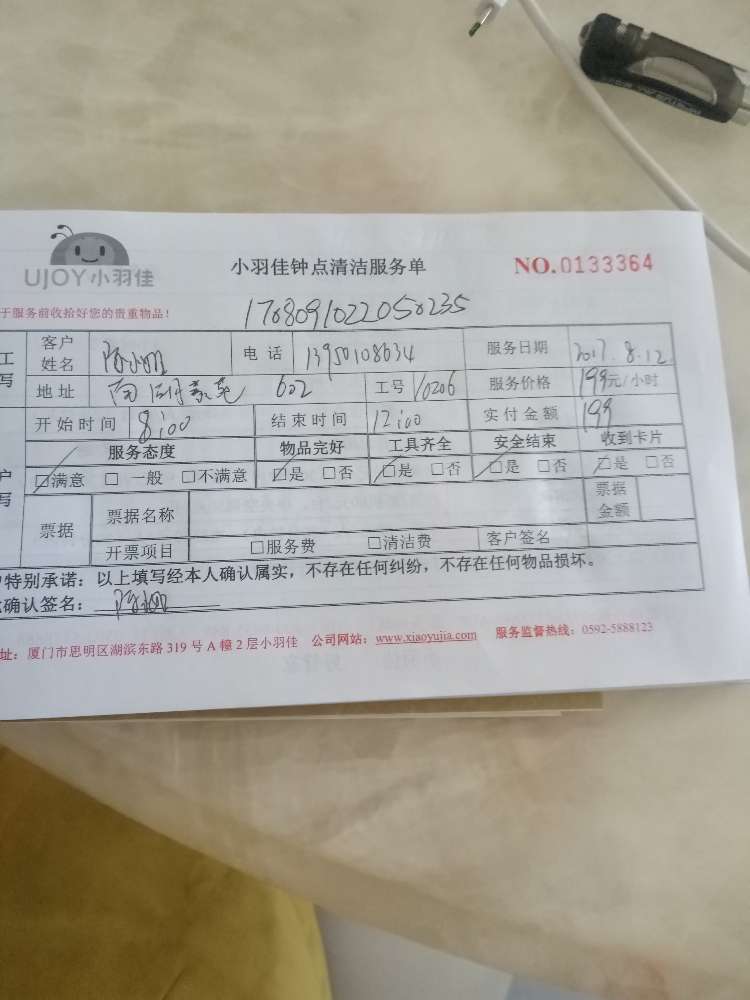 UJOY小羽佳
小羽佳钟点清洁服务单
NO.0133364
于服务前收拾好您的贵重物品!
1708091022050235
工 客户姓名 电话 13950108634 服务日期 2017.8.12
写 地址 602 工号 10206 服务价格 199元/小时
开始时间 8:00 结束时间 12:00 实付金额 199
服务态度 物品完好 工具齐全 安全结束 收到卡片
户 □满意 □一般 □不满意 □是 □否 □是 □否 □是 □否 □是 □否
写 票据 票据名称 票据金额
开票项目 □服务费 □清洁费 客户签名
特别承诺:以上填写经本人确认属实,不存在任何纠纷,不存在任何物品损坏。
确认签名:
址:厦门市思明区湖滨东路319号A幢2层小羽佳 公司网站:www.xiaoyujia.com 服务监督热线:0592-5888123